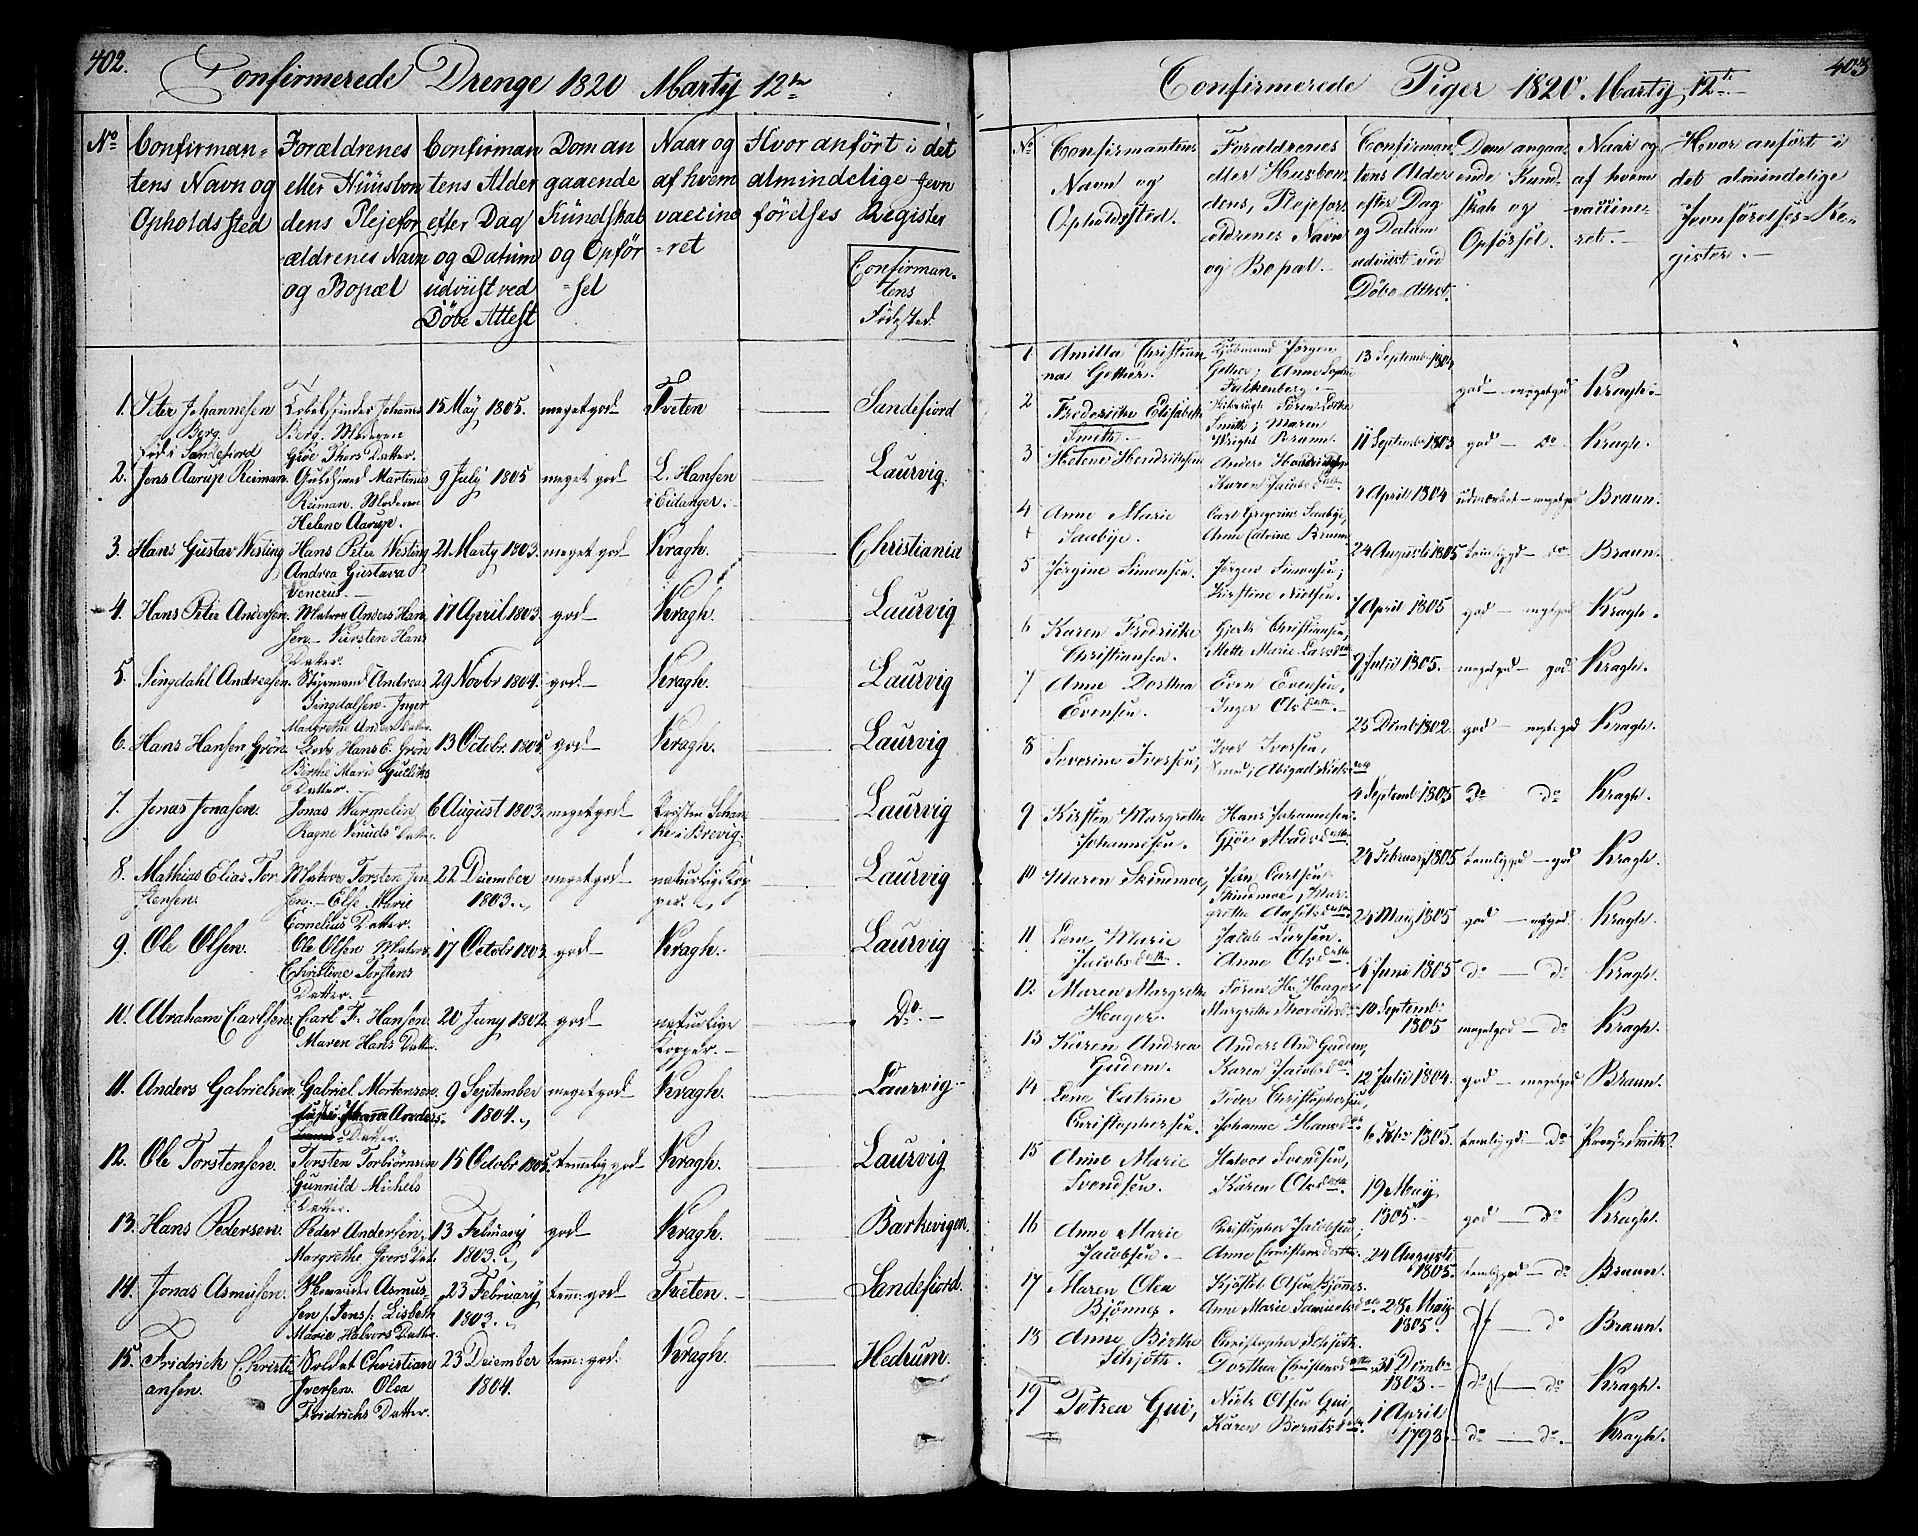 402.
Confirmerede Drenge 1820 Martÿ 12te
No
Confirman-
tens Navn og
Opholdssted
Forældrenes
eller Hüüsbon
dens Plejefor
ældrenes Navn
og Bopæl
Confirman
tens Alder
efter Dag
og Datum
udviist ved
Döbe Attest
Dom an
gaaende
Kündskab
og Opför
=sel
Naar og
af hvem
vaccine
=ret
Hvor anfört i det
almindelige Jevn
förelses Register
Confirman-
tens
Födested.
1. Peter Johannesen
Berg.
Föd i Sandefiord
Johannes
Berg. Moderen
Giöe Thors Datter.
15 Maÿ 1805.
meget god
Tveten
Sandefiord
2. Jens Aarup Reiman.
Guldsmed Martinus
Reiman. Moderen
Helene Aarup.
9 Julÿ 1805
meget god
L. Hansen
i Eidanger.
Laurvig.
3. Hans Gustav Westing
Hans Peter Westing
Andrea Gustava
Venerus.
21. Martÿ 1803.
meget god
Kragh.
Christiania
4. Hans Peter Andersen.
Matros Anders Han
sen. Kirsten Hans
Datter.
17 April 1803.
god
Kragh.
Laurvig
5. Singdahl Andreasen.
Styrmand Andreas
Singdalsen. Inger
Margrethe Anders Datter
29 Novbr 1804.
god.
Kragh.
Laurvig
6. Hans Hansen Grön
Lods Hans C. Grön
Birthe Marie Gulliks
Datter.
13 Octobr. 1805
god
Kragh.
Laurvig
7. Jonas Jonasen.
Jonas Warmelin
Ragne Knuds Datter.
6 August 1803.
meget god
Kirsten Schan
ke i Brevig.
Laurvig
8. Mathias Elias Tor
stensen
Matros Torsten Jen
sen. Else Marie
Cornelius Datter.
22 Deiember
1803.
meget god
naturlige Kop
per.
Laurvig
9. Ole Olsen.
Ole Olsen Matros
Christine Torstens
Datter.
17 Octobr 1803
god
Kragh.
Laurvig
10. Abraham Carlsen.
Carl F. Hansen.
Maren Hans Datter
20 Junÿ 1802.
god
naturlige
Kopper.
Do.
11. Anders Gabrielsen.
Gabriel Mortensen.
Johanna Anders
Datter.
9 September
1804.
meget god
Kragh.
Laurvig
12. Ole Torstensen.
Torsten Torbiörnsen
Gunnild Michels
Datter.
15 Octobr 1805.
temmelig god
Kragh.
Laurvig
13. Hans Pedersen.
Peder Andersen,
Margrethe Ivers Dat.
13 Februarÿ
1803.
god
Kragh.
Barkevigen
14. Jonas Asmusen.
Asmus-
sen /:Jens:/ Lisbeth
Marie Halvors Datter.
23 Februarÿ
1803.
tem: god
Tveten.
Sandefiord.
15. Fridrich Christi
ansen.
Soldat Christian
Iversen. Olea
Fridrichs Datter.
23 Deiember
1804.
tem: god.
Kragh.
Hedrum.
403
Confirmerede Piger 1820 Martÿ 12te
No
Confirmantens
Navn og
Opholdssted.
Forældrenes
eller Husbon
dens, Plejefor
ældrenes Navn
og Bopæl.
Confirman
tens Alder
efter Dag
og Datum
udviist ved
Döbe-Attest.
Dom angaa
ende Kund
skab og
Opförsel.
Naar og
af hvem
vaccine-
ret.
Hvor anfört i
det almindelige
Jevnförelses-Re-
gister.
1 Amilla Christian
na Gether.
Jörgen
Gether, Anne Sophie
Falkenberg.
13 Septembr 1804
god meget god
Kragh.
2 Frederikke Elisabeth
Smith.
Sören Lotke
Smith, Maren
Wright Bramn.
11 Septembr 1803
god Do.
Kragh.
3 Helene Hendriksen
Anders Hendriksen
Karen Jacobsdatter.
4 April 1804
udmærket meget god
Braun.
4 Anne Marie
Saabÿe.
Carl Gregorius Saabÿe,
Anne Catrine Bruun
24 Augusti 1805
temligod do
Braun.
5 Jörgine Simonsen.
Jörgen Simonsen,
Kirstine Nielsen.
7 April 1805
god megetgod
Kragh.
6 Karen Fredrikke
Christiansen.
Gjert Christiansen,
Mette Marie Larsdatter
9 Julii 1805.
megetgod god
Kragh.
7 Anne Dorthea
Evensen.
Even Evensen,
Inger Olsdatter.
25 Decmbr 1802.
god megetgod
Kragh.
8 Severine Iversen,
Iver Iversen,
Smed; Abigael Nielsdatter
4 Septemb 1805
Do Do
Kragh.
9 Kirsten Margrethe
Johannesen.
Hans Johannesen.
Gjöe Madsdatter
24 Februarÿ 1805
temligod god
Kragh.
10 Maren Skindmoe,
Jörn Carlsen
Skindmoe, Mar-
grethe
24 Maÿ 1805
god meget god
Kragh.
11 Lene Marie
Jacobsdatter.
Jacob Larsen.
Anne Olsdatter
4 Juni 1805
do Do
Kragh.
12. Maren Margrethe
Hager.
Sören Hager
Margrethe Thorvildsd.
10 Septemb.
1805
megetgod do
Kragh.
13 Karen Andrea
Gudem.
Anders And. Gudem,
Karen Jacobsdatter.
12 Julii 1804.
god meget god
Braun.
14 Lene Catrine
Christophersen.
Peder Christophersen,
Johanne Hansdatter
6 Febr 1805.
temligod. Do
Smith.
15 Anne Marie
Svendsen.
Halvor Svendsen,
Karen Olsdatter.
19 Maÿ
1805.
god do
Kragh.
16 Anne Marie
Jacobsen.
Christopher Jacobsen,
Anne Christensdatter.
24 Augusti
1805.
temligod do
Braun.
17 Maren Olea
Bjönnes.
Kjöstel Olsen Bjönnes.
Anne Marie Samuelsdatter
28 Maÿ
1805.
do do
Braun.
18 Anne Birthe
Schjöth.
Christopher Schjöth.
Dorthea Christensdatter
31 Decmbr
1803.
do do
Kragh.
19 Petrea Gui,
Niels Olsen Gui,
Karen Berntsdatter.
1 April
1793.
do do.
Kragh.